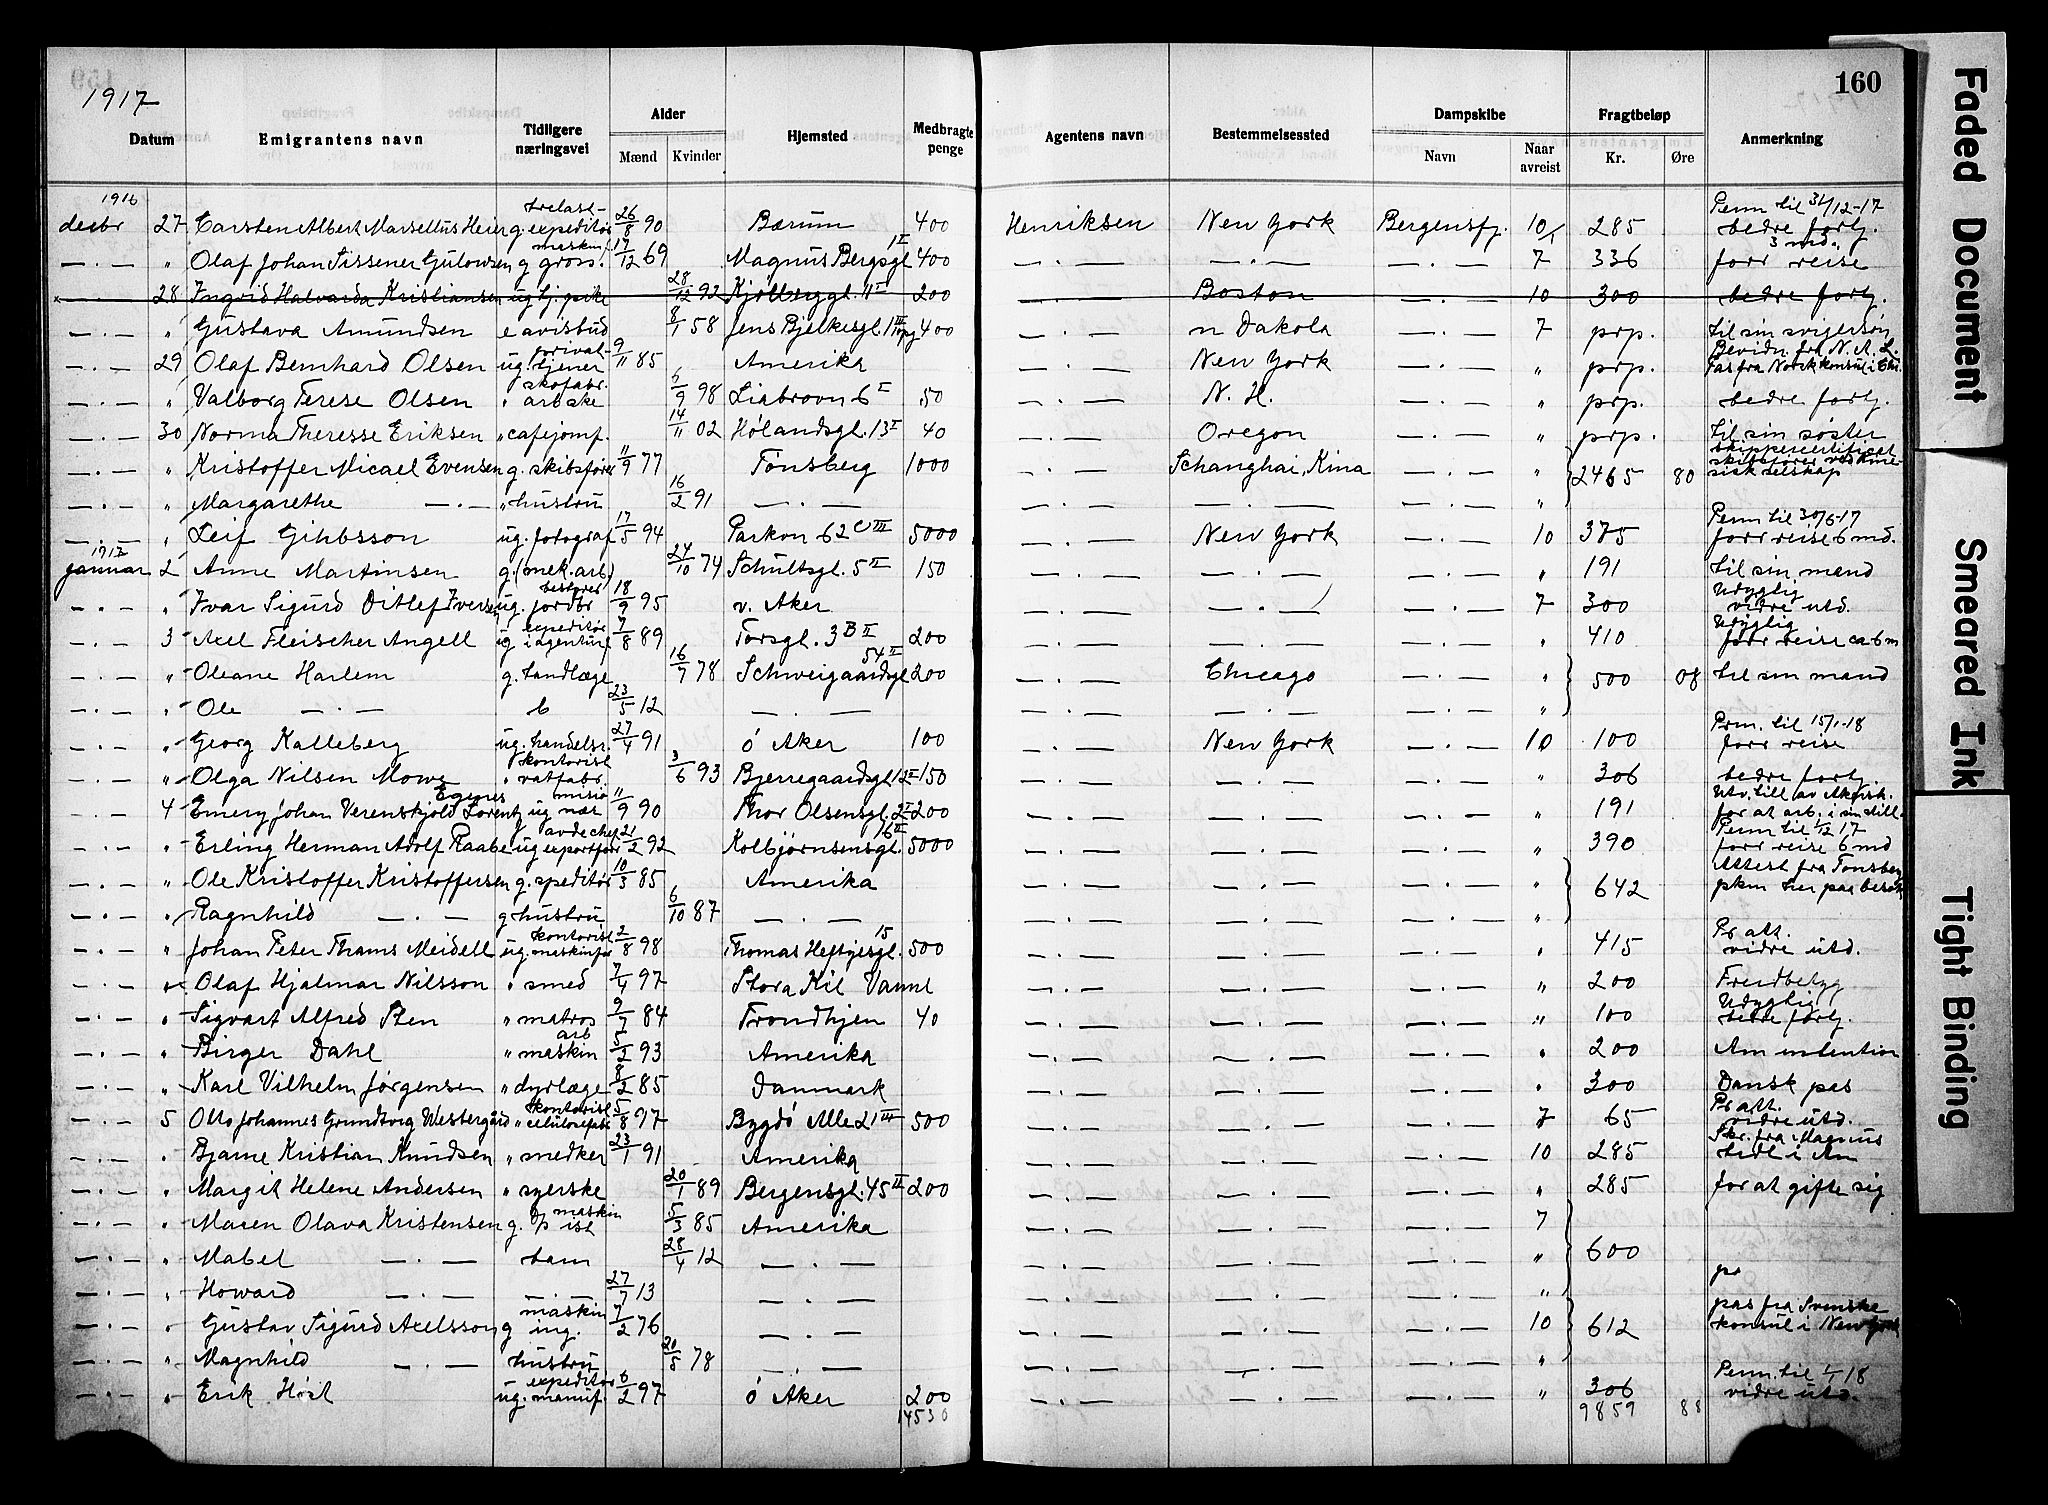 1917
160
Datum Emigrantens navn Tidligere næringsvei Alder Mænd Kvinder Hjemsted Medbragte penge Agentens navn Bestemmelsessted Dampskibe Navn Naar avreist Fragtbeløp Kr. Øre Anmerkning
1916 trelast- Perm til 31/12-17
decbr 27 Carsten Albert Marsellus Heier g. expeditör 26/8 90 Bærum 400 Henriksen New York Bergensfj. 10/1 285 bedre fortj.
maskin 1 I 3 md.
— · — " Olaf Johan Sissener Gulowsen g gross. 17/12 69 Magnus Bergsgt 400 — · — — · — — · — 7 336 forr reise
— · — 28 Ingrid Halvarda Kristiansen ug tj. pike 28/12 92 Kjölberggt. 11 I 200 — · — Boston — · — 10 300 bedre fortj.
— · — " Gustava Amundsen e avisbud 8/1 58 Jens Bjelkesgt. 1 III opg 400 — · — n Dakota — · — 7 prp. til sin svigersön
privat- Bevidn. fra N. A. L.
— · — 29 Olaf Bernhard Olsen ug. tjener 9/11 85 Amerika — · — New York — · — " prp. Pas fra Norsk konsul i Chi.
skofabr.
— · — " Valborg Terese Olsen " arbske 6/9 98 Liabrovn 6 I 50 — · — N. H. — · — " prp. bedre fortj.
— · — 30 Norma Theresse Eriksen " cafejomf. 14/11 02 Hølandsgt. 13 I 40 — · — Oregon — · — " prp. til sin søster
skippercertificat
— · — " Kristoffer Micael Evensen g. skibsfører 11/9 77 Tønsberg 1000 — · — Schanghai, Kina — · — " 2465 80 skibsfører ved kinesisk selskap
— · — " Margarethe — · — " hustru 16/2 91 — · — — · — — · — — · — "
Perm til 30/6-17
— · — " Leif Gihbsson ug. fotograf 17/5 94 Parkvn 62 c III 5000 — · — New York — · — 10 375 forr reise 6 md.
1917
januar 2 Anne Martinsen g. (mek. arb) 24/10 74 Schultsgt. 5 II 150 — · — — · — — · — " 191 til sin mand
bestyrer Udyglig
— · — " Ivar Sigurd Ditlef Iversen ug. jordbr 18/9 95 v. Aker — · — — · — — · — 7 300 vidre utd.
expeditör Udyglig
— · — 3 Axel Fleischer Angell ug i agenturf 7/8 89 Torsgt. 3 B II 200 — · — — · — — · — " 410 forr reise ca 6 m
54 II
— · — " Oleane Harlem g. tandlæge 16/7 78 Schweigaardsgt 200 — · — Chicago — · — " 500 08 til sin mand
— · — " Ole — · — b 23/5 12 — · — — · — — · — — · — "
Prm. til 15/1-18
— · — " Georg Kalleberg ug. handelsr. 27/4 91 ö Aker 100 — · — New York — · — 10 100 forr reise
kontorist
— · — " Olga Nilsen Mowe " vatfabr. 3/6 93 Bjerregaardsgt 12 II 150 — · — — · — — · — " 306 bedre fortj.
Egenes misio
— · — 4 Emery Johan Verenskjold Lorentz ug nær 11/9 90 Thor Olsensgt. 2 I 200 — · — — · — — · — " 191 for at arb. i sin still.
avdechef 16 II Perm til 1/12 17
— · — " Erling Herman Adolf Raabe ug exportfor 21/2 92 Kolbjørnsensgt. 5000 — · — — · — — · — " 390 forr reise 6 md
Attest fra Tønsberg
— · — " Ole Kristoffer Kristoffersen g. speditör 10/3 85 Amerika — · — — · — — · — " 642 pkm her paa besøk
— · — " Ragnhild — · — g hustru 6/10 87 — · — — · — — · — — · — "
kontorist 15 Pr att.
— · — " Johan Peter Thams Meidell ug. maskinfor 2/8 98 Thomas Heftyesgt. 500 — · — — · — — · — " 415 vidre utd.
— · — " Olaf Hjalmar Nilsson " smed 7/4 97 Stora Kil Varml — · — — · — — · — " 200 Fredbetyg
Udyglig
— · — " Sigvart Alfred Sten " matros 9/7 84 Trondhjem 40 — · — — · — — · — " 100 bedre fortj.
arb
— · — " Birger Dahl " maskin 5/2 93 Amerika — · — — · — — · — " 200 Am intention
— · — " Karl Vilhelm Jørgensen " dyrlæge 8/2 85 Danmark — · — — · — — · — " 300 Dansk pas
kontorist Pr att.
— · — 5 Otto Johannes Grundtvig Westergård " celulosefabr 5/8 97 Bygdö Alle 21 III 500 — · — — · — — · — 7 65 vidre utd.
Skr. fra Magnus
— · — " Bjarne Kristian Knudsen " snedker 23/1 91 Amerika — · — — · — — · — 10 285 tidl i Am
— · — " Margit Helene Andersen " syerske 20/1 89 Bergensgt. 45 II 200 — · — — · — — · — " 285 for at gifte sig
maskin
— · — " Maren Olava Kristensen g. ist 5/3 85 Amerika — · — — · — — · — 7
— · — " Mabel — · — barn 28/4 12 — · — — · — — · — — · — " 600
pr
— · — " Howard — · — — · — 27/7 13 — · — — · — — · — — · — "
maskin pas fra Svenske
— · — " Gustav Sigurd Axelsson g ing. 7/2 76 — · — — · — — · — — · — 10 612 konsul i New York
— · — " Magnhild — · — hustru 20/5 78 — · — — · — — · — — · — "
expeditör Perm. til 1/1 18
— · — " Erik Høst ug. manuf. 6/2 97 ö Aker 200 — · — — · — — · — " 306 vidre utd.
14530 9859 88
Faded Document
Smeared Ink
Tight Binding